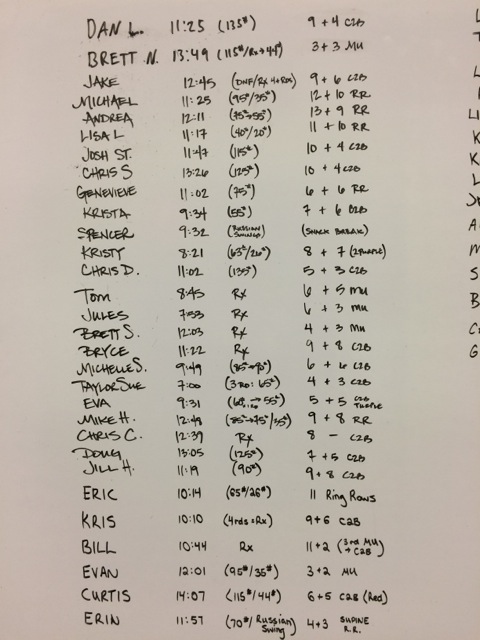 DAN L. 11:25 (135#) 9 + 4 C2B
BRETT N. 13:49 (115#/Rx→44#) 3 + 3 MU
JAKE 12:45 (DNF/Rx 4 RDS) 9 + 6 C2B
MICHAEL 11:25 (95#/35#) 12 + 10 RR
ANDREA 12:11 (75→55#) 13 + 9 RR
LISA L 11:17 (40#/20#) 11 + 10 RR
JOSH ST. 11:47 (115#) 10 + 4 C2B
CHRIS S 13:26 (125#) 10 + 4 C2B
GENEVIEVE 11:02 (75#) 6 + 6 RR
KRISTA 9:34 (55#) 7 + 6 C2B
SPENCER 9:32 (RUSSIAN SWINGS) (SNACK BREAK)
KRISTY 8:21 (63#/26#) 8 + 7 (2 PURPLE)
CHRIS D. 11:02 (135#) 5 + 3 C2B
TOM 8:45 Rx 6 + 5 MU
JULES 7:53 Rx 6 + 3 MU
BRETT S. 12:03 Rx 4 + 3 MU
BRYCE 11:22 Rx 9 + 8 C2B
MICHELLE S. 9:49 (85→90#) 6 + 6 C2B
TAYLOR SUE 7:00 (3 RD: 65#) 4 + 3 C2B
EVA 9:31 → 55#) 5 + 5 C2B PURPLE
MIKE H. 12:48 (85→75#/35#) 9 + 8 RR
CHRIS C. 12:39 Rx 8 - C2B
DOUG 13:05 (125#) 7 + 5 C2B
JILL H. 11:19 (90#) 9 + 8 C2B
ERIC 10:14 (65#/26#) 11 Ring Rows
KRIS 10:10 (4rds=Rx) 9+6 C2B
BILL 10:44 Rx 11+2 (3rd MU → C2B)
EVAN 12:01 (95#/35#) 3+2 MU
CURTIS 14:07 (115#/44#) 6+5 C2B (Red)
ERIN 11:57 (70#/Russian Swing) 4+3 SUPINE R.R.